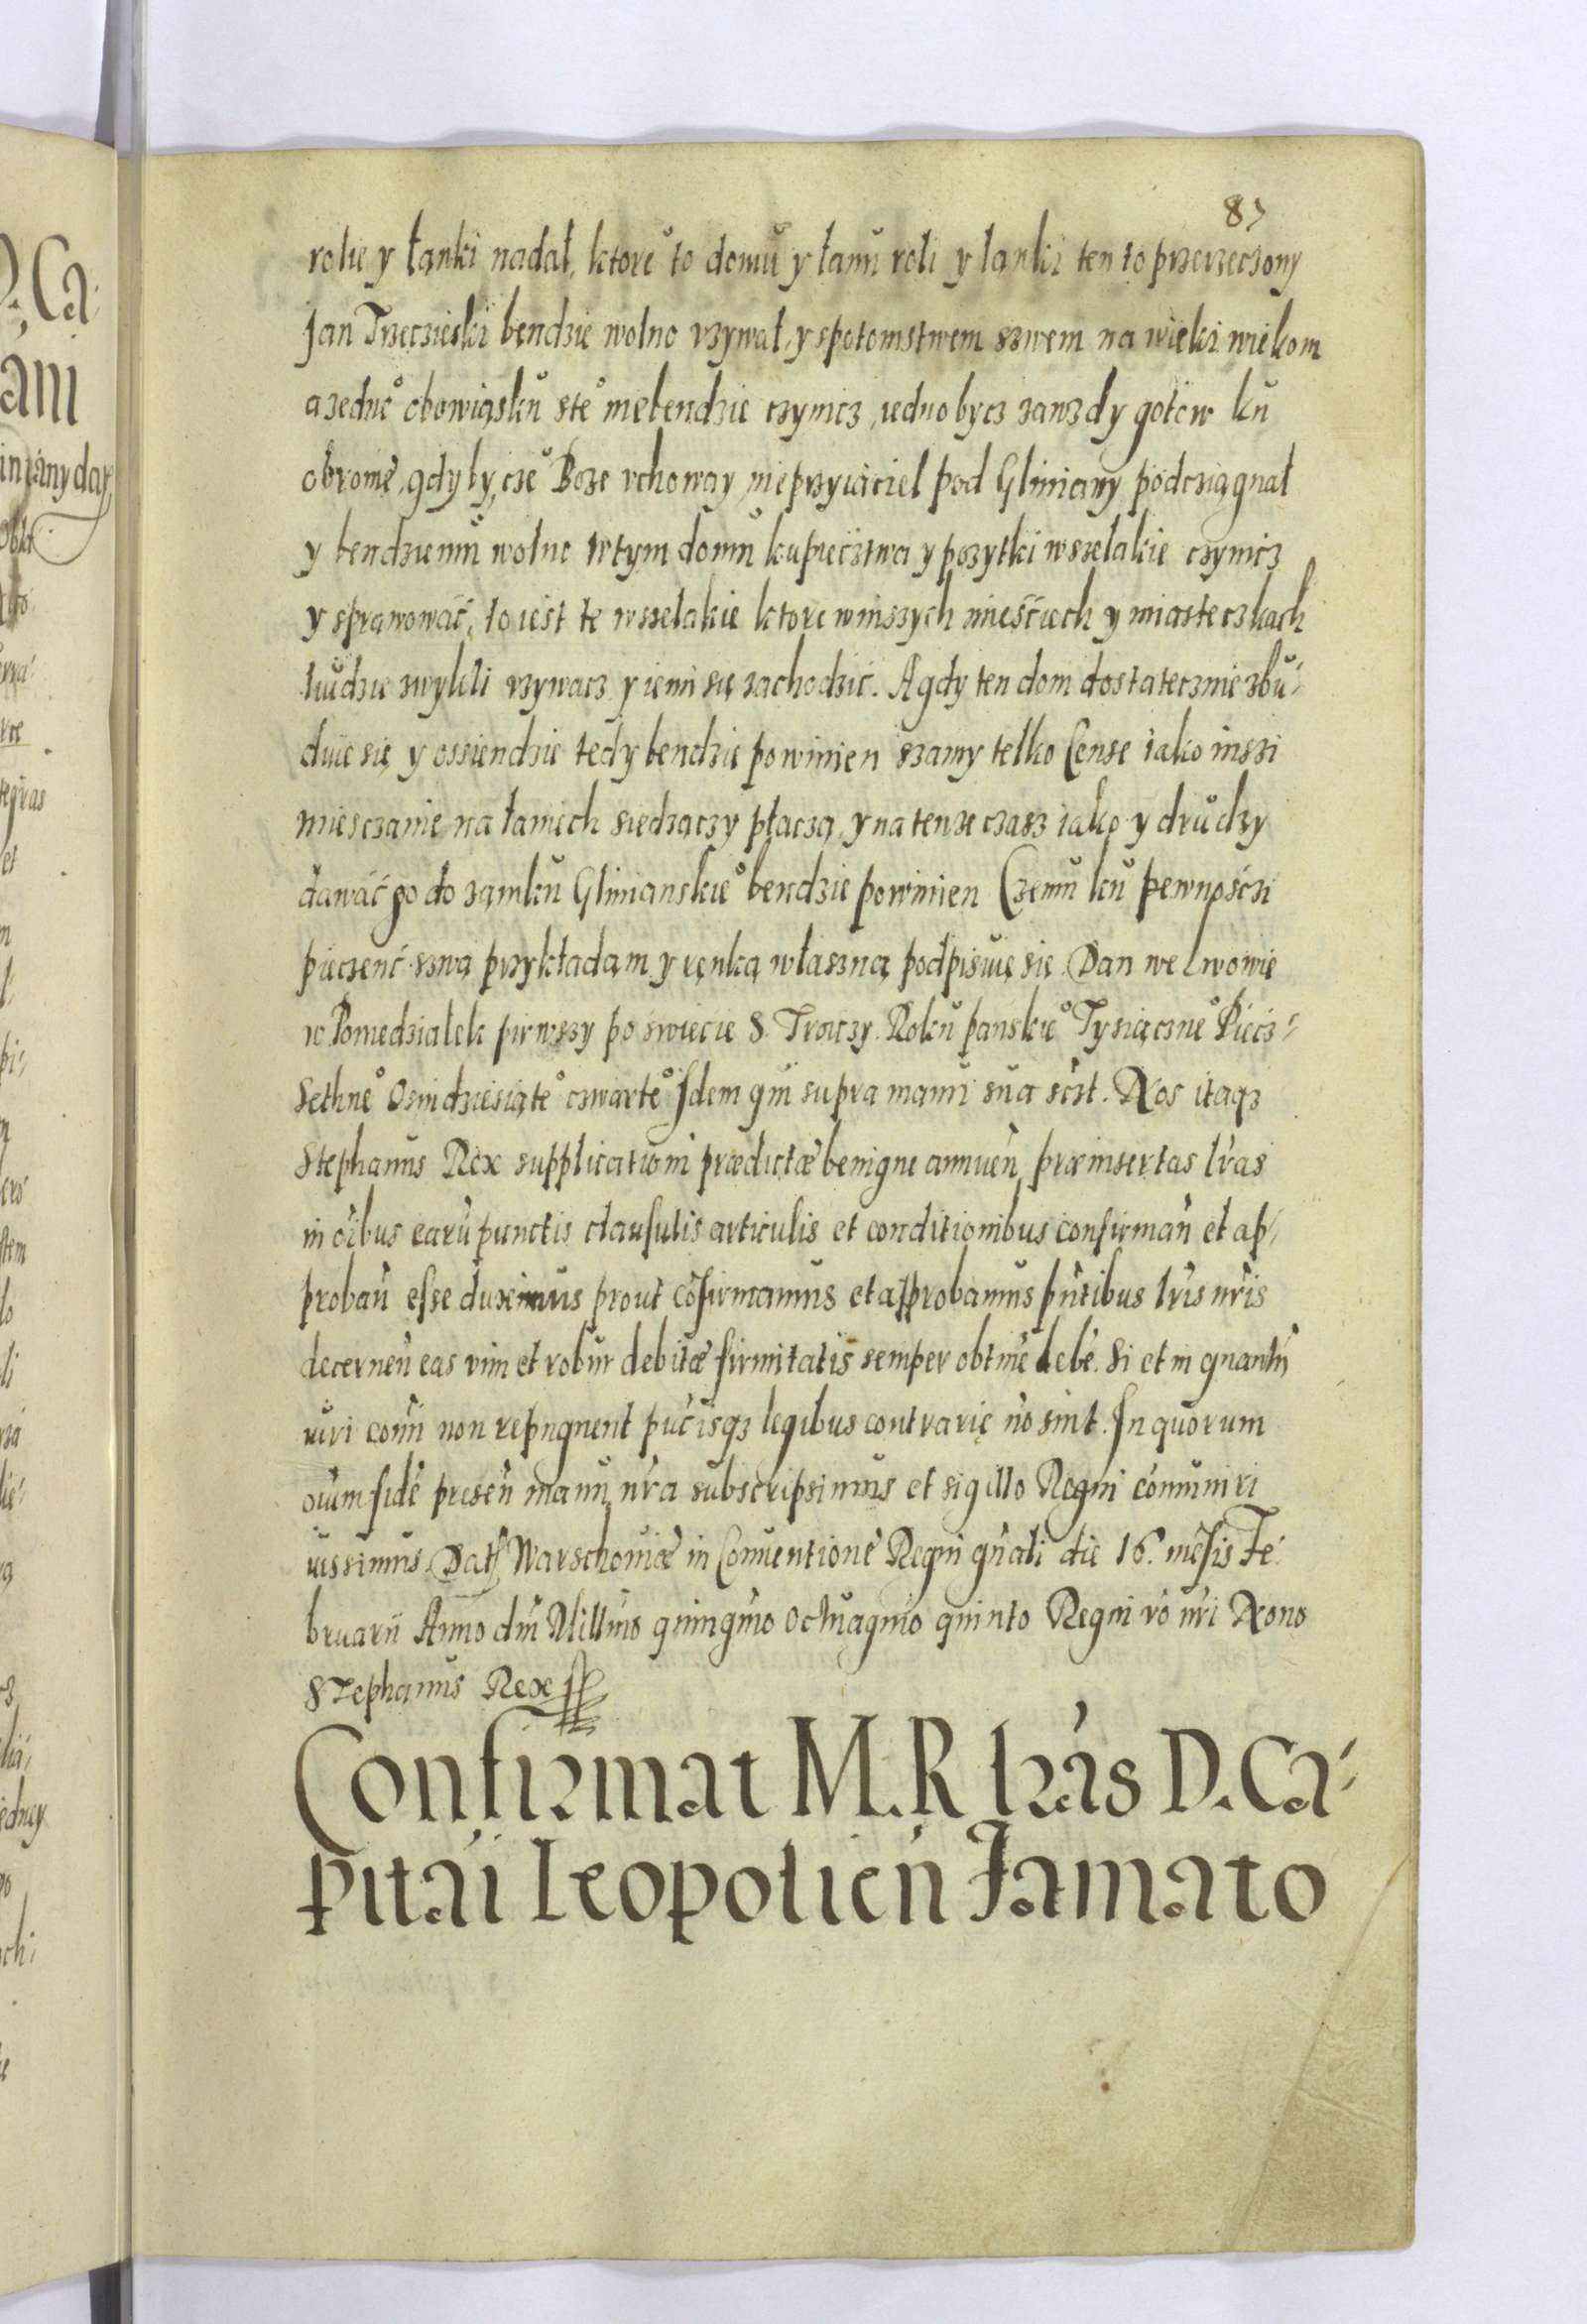 87
rolie y łąnki nadał, ktoreº to domŭ y łanŭ roli y łanki ten to przerzeczony
Jan Trzeczieski bendzie wolno vzywał, y spotomstwem szwem na wieki wiekom
a zednº obowiąskŭ steº niebendzie czynicz, iedno bycz zawzdy gotow kŭ
obronie, gdy by, czeº Boze vchoway, nieprzyiaciel pod Gliniany podcziągnął
y bendziemŭ wolno w tym domŭ kupiecztwa y pozytki wszelakie czynicz
y sprawowáć, to iest te wszelakie ktore winszych mieśćiech y miasteczkach
lŭdzie zwykli vzywacz y iemi się zachodzić. A gdy ten dom dostatecznie zbŭ-
dŭie się y ossiendzie tedy bendzie powinien szamy telko Cense iako inszi
miesczanie na łaniech siedzączy płaczą, y na tenze czasz iako y drŭdzy
dawáć go do zamkŭ Glinianskieº bendzie powinien Czemŭ kŭ pewnośczi
pieczenć szwą przykładam y ręnką właszną podpisŭię się. Dan we Lwowie
w Poniedziałek pirwszy po swiecie S. Troiczy. Rokŭ panskieº Tysiączneº Piecz-
Sethneº Osmdziesiąteº czwarteº Idem qui supra manu sŭa scrst. Nos itaqz
Stephanus Rex supplicationi prædictæ benigne annuen præinsertas lras
in oibus earŭ punctis clausulis articulis et conditionibus confirman et ap-
proban esse duximus prout cofirmamus et approbamus pntibus lris nris
decernen eas vim et robur debitæ firmitatis semper obtine debe. Si et in quantŭ
iuri comi non repugnent pucisqz legibus contrarię no sint. In quorum
oium fide presen manu nra subscripsimus et sigillo Regni comuniri
iussimus. Dat Warschoviæ in Conventione Regni gnali die 16. mesis Fe-
bruarii Anno dni Millmo quingmo Octuagmo quinto Regni vo nri Nono
Stephanus Rex
Confirmat M. R. lras D. Ca-
pitai Leopolien Jamato